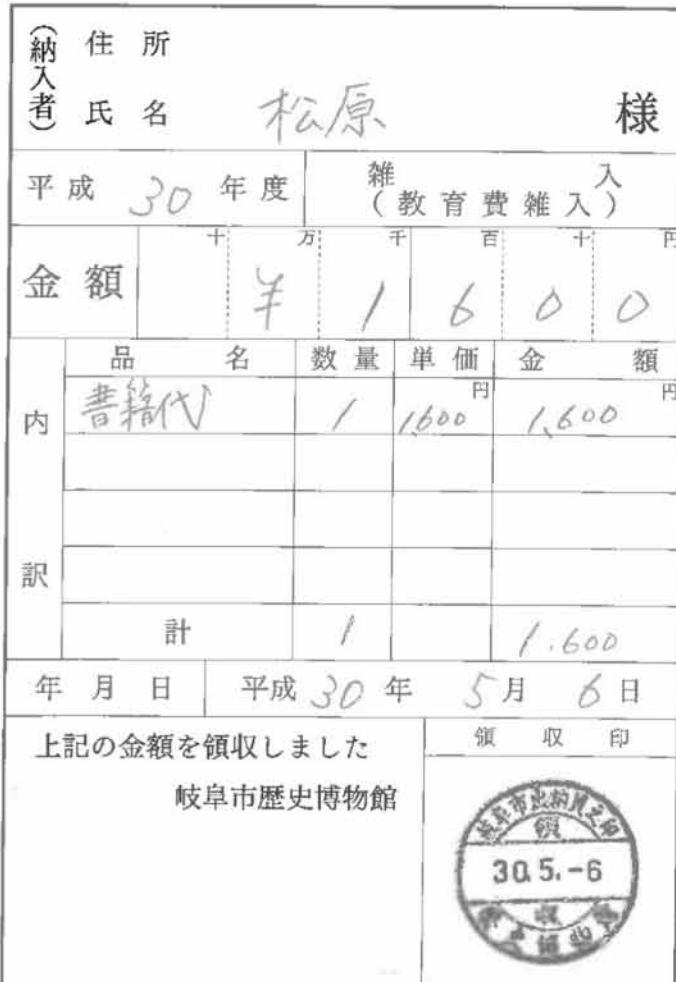 (納入者) 住所
氏名 松原 様
平成 30 年度 雑入
(教育費雑入)
十 万 千 百 十 円
金額 ¥ 1 6 0 0
品名 数量 単価 金額
円 円
内訳
書籍代 1 1,600 1,600
計 1 1.600
年月日 平成 30 年 5 月 6 日
上記の金額を領収しました
領収印
岐阜市歴史博物館
岐阜市出納員之印
領
30.5.-6
収